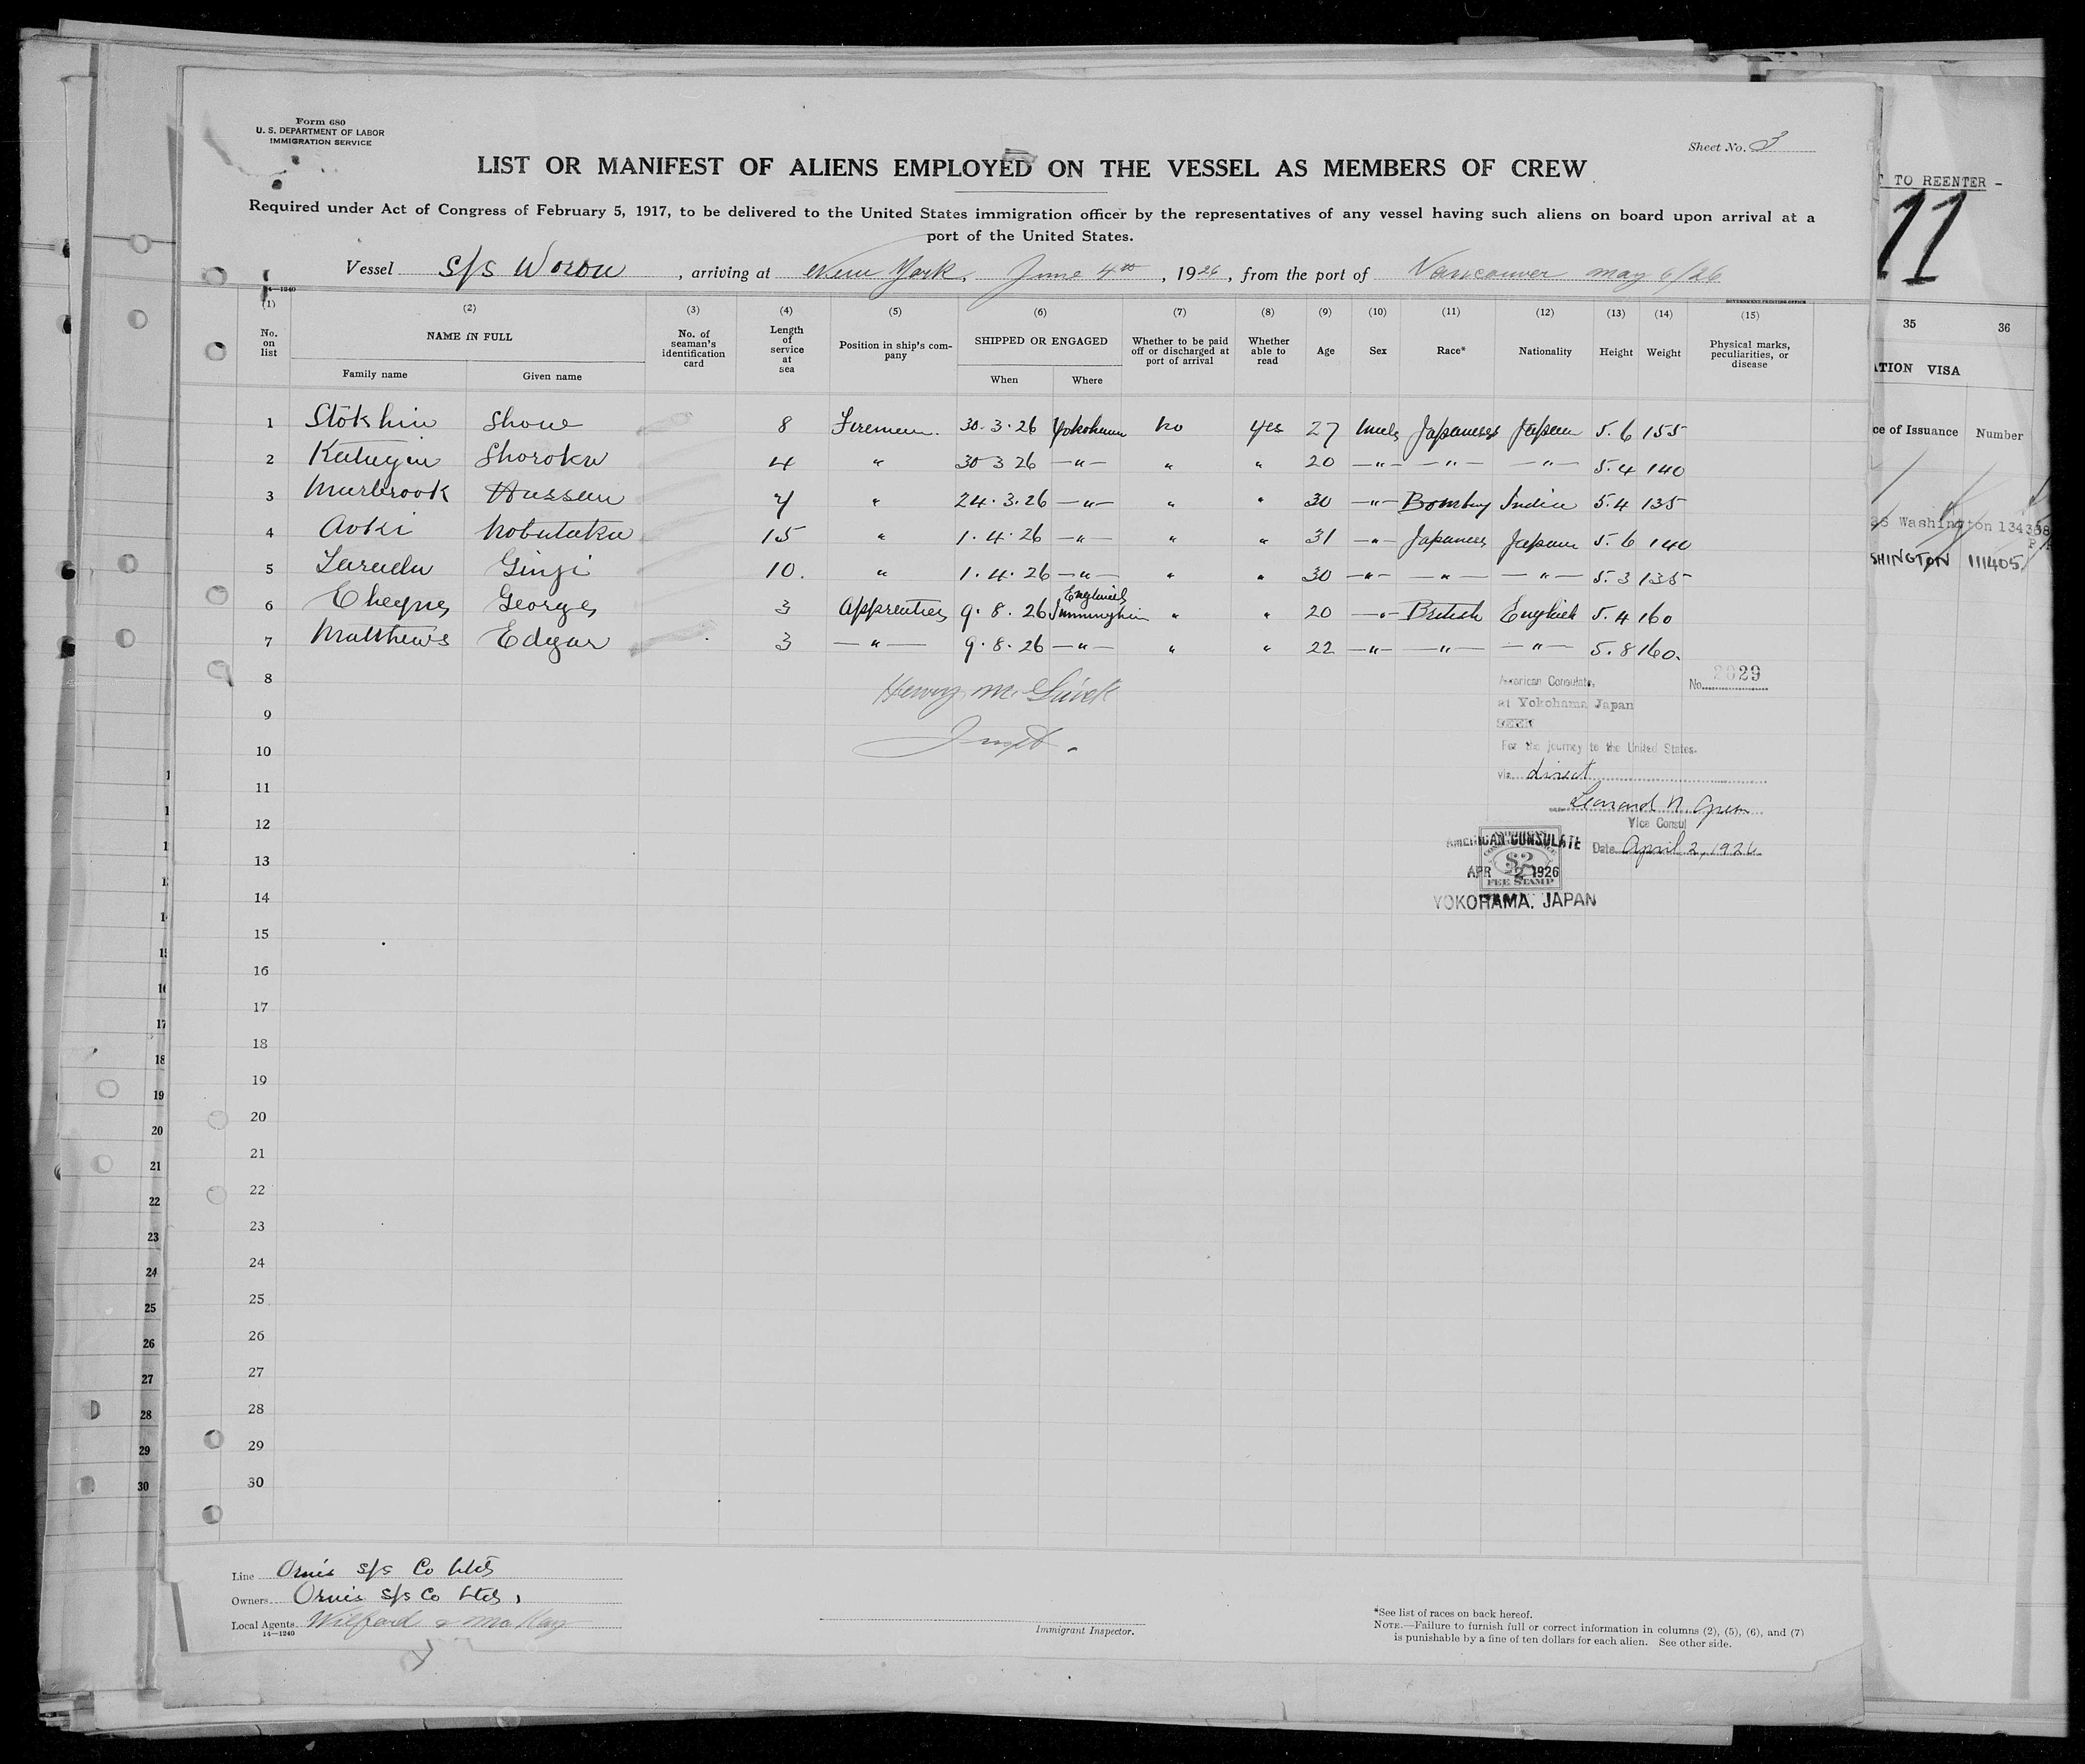 Form 680
U. S. DEPARTMENT OF LABOR
IMMIGRATION SERVICE
Sheet No. 3
LIST OR MANIFEST OF ALIENS EMPLOYED ON THE VESSEL AS MEMBERS OF CREW
Required under Act of Congress of February 5, 1917, to be delivered to the United States immigration officer by the representatives of any vessel having such aliens on board upon arrival at a
port of the United States.
Vessel S/S , arriving at New York, June 4th, 1926, from the port of Vancouver May 6/26
14—1240
(1) (2) (3) (4) (5) (6) (7) (8) (9) (10) (11) (12) (13) (14) (15)
No. on list NAME IN FULL No. of seaman's identification card Length of service at sea Position in ship's company SHIPPED OR ENGAGED Whether to be paid off or discharged at port of arrival Whether able to read Age Sex Race* Nationality Height Weight Physical marks, peculiarities, or disease
Family name Given name When Where
1 Stokhiu Show 8 Firemen. 30.3.26 Yokohama No Yes 27 Male Japanese Japan 5.6 155
2 Shoroku 4 " 30 3 26 —"— " " 20 —"— —"— —"— 5.4 140
3 Murbrook Hassan 7 " 24.3.26 —"— " " 30 —"— Bombay India 5.4 135
4 Aoki Nobutaku 15 " 1.4.26 —"— " " 31 —"— Japanese Japan 5.6 140
5 Ginji 10. " 1.4.26 —"— " " 30 —"— —"— —"— 5.3 135
6 Cheyne George 3 Apprentice 9.8.26 " " 20 —"— British English 5.4 160
7 Matthews Edgar 3 —"— 9.8.26 —"— " " 22 —"— —"— —"— 5.8 160.
8
9
10
11
12
13
14
15
16
17
18
19
20
21
22
23
24
25
26
27
28
29
30
Inspt.
American Consulate,
No. 2029
at Yokohama Japan
SEEN
For the journey to the United States.
via direct
Leonard N. Green
Vice Consul
Date April 2, 1926
AMERICAN CONSULATE
$2
APR 2 1926
FEE STAMP
YOKOHAMA, JAPAN
Line Ornis S/S Co Ltd
Owners Ornis S/S Co Ltd,
Local Agents Wilford & McKay
14—1240
Immigrant Inspector.
*See list of races on back hereof.
NOTE.—Failure to furnish full or correct information in columns (2), (5), (6), and (7)
is punishable by a fine of ten dollars for each alien. See other side.
TO REENTER -
11
35 36
VISA
ce of Issuance Number
Washington
SHINGTON 111405
18
19
20
21
22
23
24
25
26
27
28
29
30